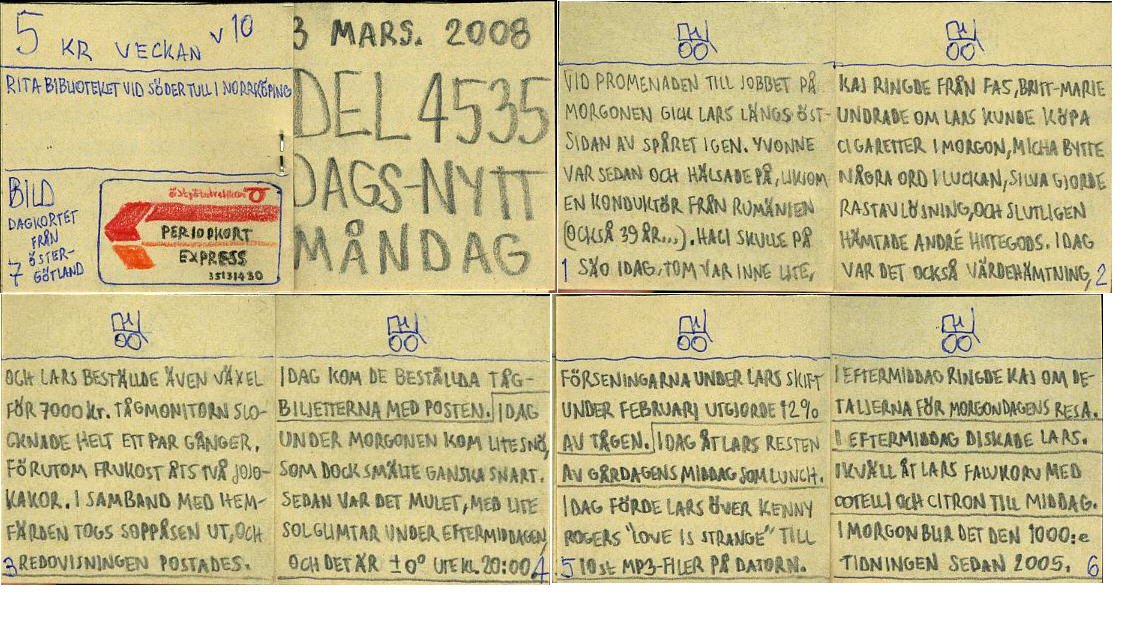 5 KR VECKAN V10
RITA BIBLIOTEKET VID SÖDERTULL I NORRKÖPING
BILD
DAGKORTET
FRÅN
ÖSTER-
GÖTLAND
7
östgötatrafiken
PERIODKORT
EXPRESS
35131430
3 MARS. 2008
DEL 4535
DAGS-NYTT
MÅNDAG
VID PROMENADEN TILL JOBBET PÅ
MORGONEN GICK LARS LÄNGS ÖST-
SIDAN AV SPÅRET IGEN. YVONNE
VAR SEDAN OCH HÄLSADE PÅ, LIKSOM
EN KONDUKTÖR FRÅN RUMÄNIEN
(OCKSÅ 39 ÅR...). HACI SKULLE PÅ
1 SÄO IDAG, TOM VAR INNE LITE,
KAJ RINGDE FRÅN FAS, BRITT-MARIE
UNDRADE OM LARS KUNDE KÖPA
CIGARETTER I MORGON, MICHA BYTTE
NÅGRA ORD I LUCKAN, SILVA GJORDE
RASTAVLÖSNING, OCH SLUTLIGEN
HÄMTADE ANDRÉ HITTEGODS. IDAG
VAR DET OCKSÅ VÄRDEHÄMTNING, 2
OCH LARS BESTÄLLDE ÄVEN VÄXEL
FÖR 7000 kr. TÅGMONITORN SLO-
CKNADE HELT ETT PAR GÅNGER.
FÖRUTOM FRUKOST ÅTS TVÅ JOJO-
KAKOR. I SAMBAND MED HEM-
FÄRDEN TOGS SOPPÅSEN UT, OCH
3 REDOVISNINGEN POSTADES.
IDAG KOM DE BESTÄLLDA TÅG-
BILJETTERNA MED POSTEN. IDAG
UNDER MORGONEN KOM LITE SNÖ,
SOM DOCK SMÄLTE GANSKA SNART.
SEDAN VAR DET MULET, MED LITE
SOLGLIMTAR UNDER EFTERMIDDAGEN
OCH DET ÄR ±0° UTE KL. 20:00. 4
FÖRSENINGARNA UNDER LARS SKIFT
UNDER FEBRUARI UTGJORDE 12%
AV TÅGEN. IDAG ÅT LARS RESTEN
AV GÅRDAGENS MIDDAG SOM LUNCH.
IDAG FÖRDE LARS ÖVER KENNY
ROGERS "LOVE IS STRANGE" TILL
5 10st MP3-FILER PÅ DATORN.
I EFTERMIDDAG RINGDE KAJ OM DE-
TALJERNA FÖR MORGONDAGENS RESA.
I EFTERMIDDAG DISKADE LARS.
IKVÄLL ÅT LARS FALUKORV MED
COTELLI OCH CITRON TILL MIDDAG.
I MORGON BLIR DET DEN 1000:e
TIDNINGEN SEDAN 2005. 6